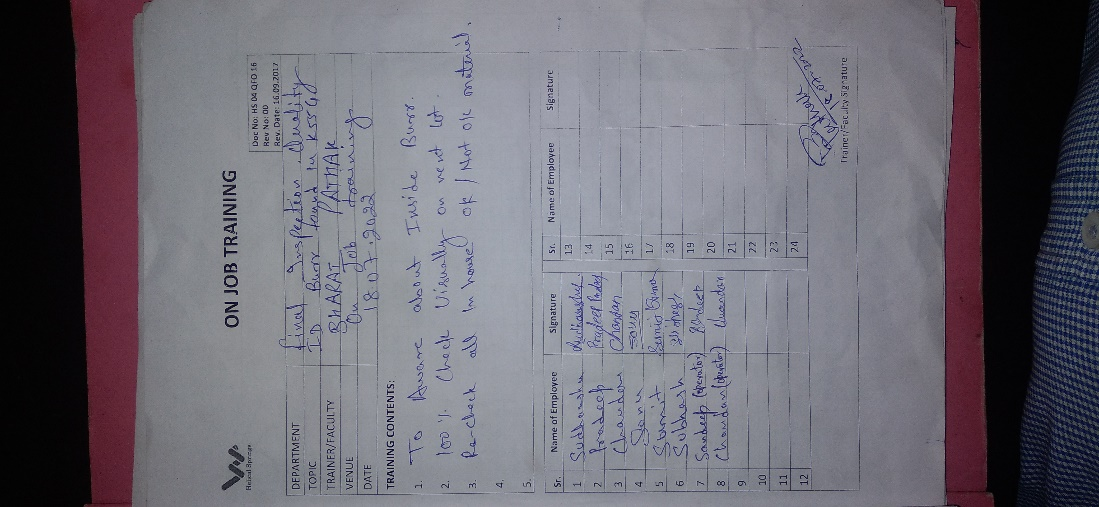 Helical Springs
ON JOB TRAINING
Doc No: HS 04 QFO 16
Rev No: 00
Rev. Date: 16.09.2017
DEPARTMENT Final Inspection, Quality
TOPIC ID Burr found in K5SG
TRAINER/FACULTY BHARAT PATHAK
VENUE On Job training
DATE 18.07.2022
TRAINING CONTENTS:
1. To Aware about Inside Burr.
2. 100% Check Visually on next lot.
3. Re-check all In house OK / Not OK material.
4.
5.
Sr. Name of Employee Signature Sr. Name of Employee Signature
1 Sudhanshu Sudhanshu 13
2 Pradeep Pradeep 14
3 Chandan Chandan 15
4 Sonu Sonu 16
5 Sumit Sumit 17
6 Subhash 18
7 Sandeep (operator) Sandeep 19
8 Chandan (operator) Chandan 20
9 21
10 22
11 23
12 24
Trainer/Faculty Signature